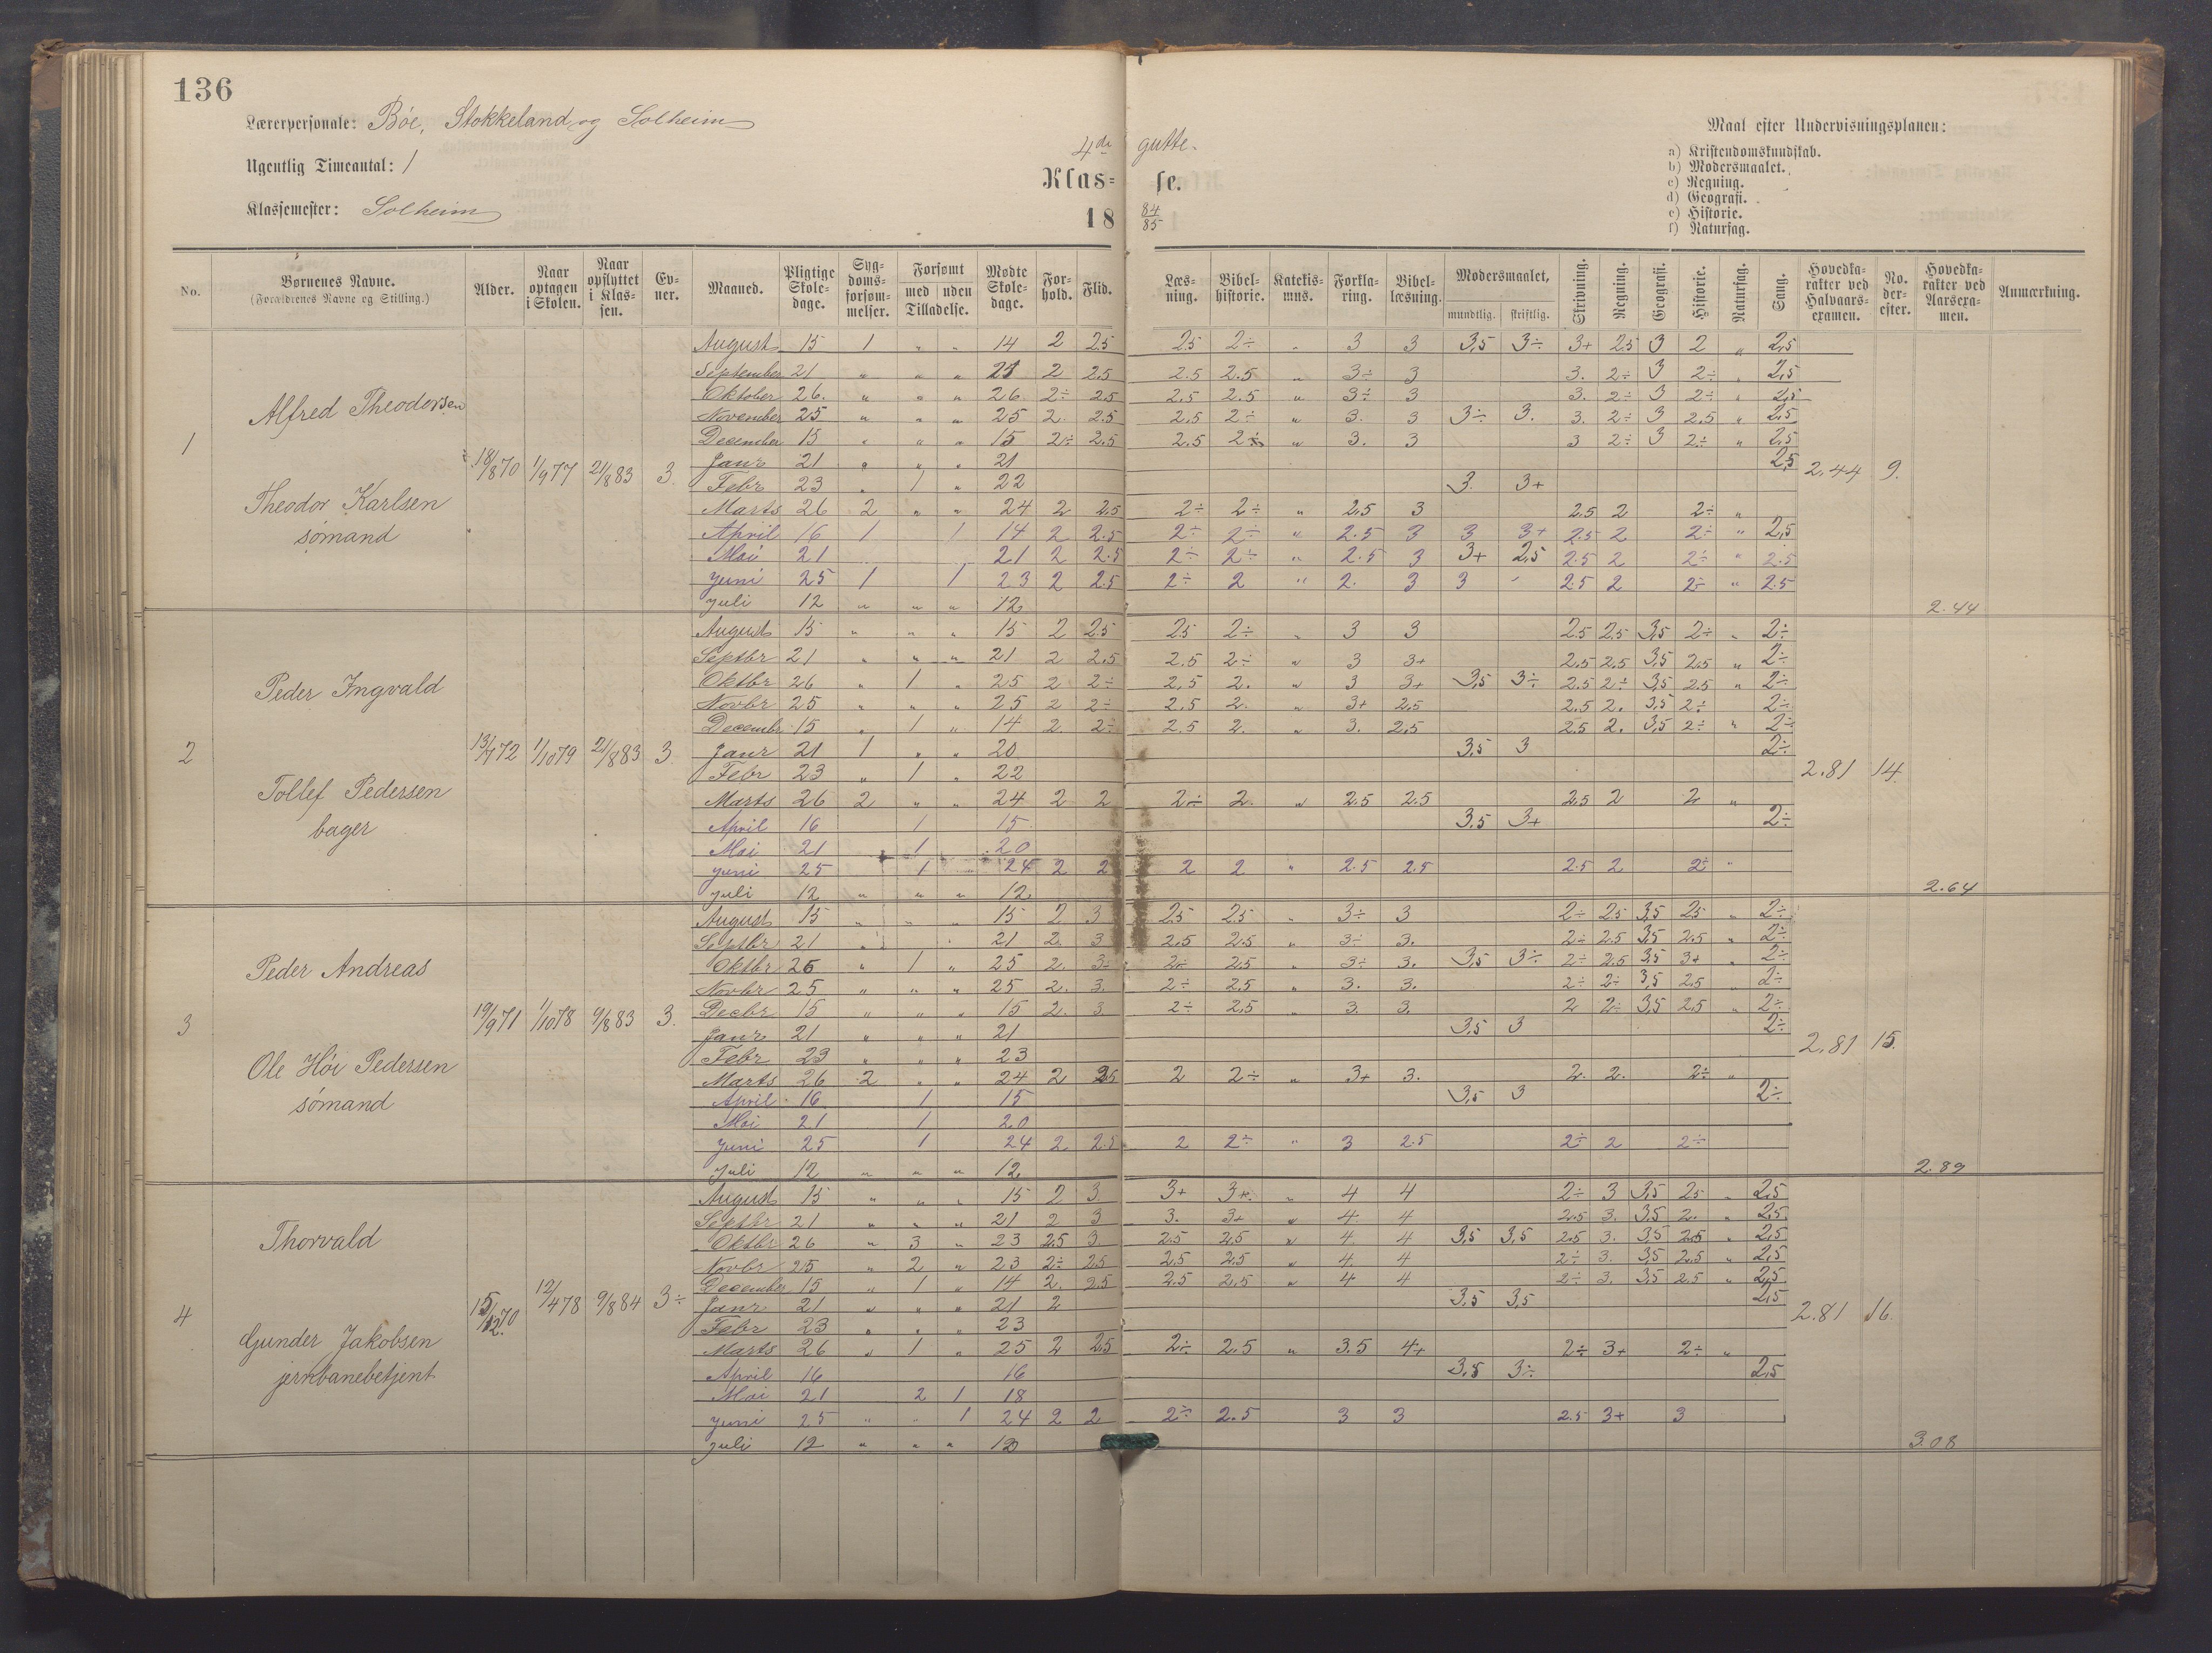 136
Lærerpersonale: Böe, Stokkeland og Solheim
Ugentlig Timeantal: 1
Klassemester: Solheim
4de gutte-
Klas= se.
18 84/85
Maal efter Undervisningsplanen:
a) Kristendomskundskab.
b) Modersmaalet.
c) Regning.
d) Geografi.
e) Historie.
f) Naturfag.
No. Børnenes Navne. (Forældrenes Navne og Stilling.) Alder. Naar optagen i Skolen. Naar opflyttet i Klassen. Evner. Maaned. Pligtige Skoledage. Sygdomsforsømmelser. Forsømt med uden Tilladelse. Mødte Skoledage. Forhold. Flid. Læsning. Bibelhistorie. Katekismus. Forklaring. Bibellæsning. Modersmaalet, mundtlig. skriftlig. Skrivning. Regning. Geografi. Historie. Naturfag. Sang. Hovedkarakter ved Halvaarsexamen. No. derefter. Hovedkarakter ved Aarsexamen. Anmærkning.
1 Alfred Theodorsen
Theodor Karlsen
sømand
18/8 70 1/9 77 21/8 83 3. 2,44 9.
August 15 1 " " 14 2 2.5 2.5 2÷ " 3 3 3,5 3÷ 3+ 2.5 3 2 " 2,5
September 21 " " " 21 2 2.5 2.5 2.5 " 3÷ 3 3. 2÷ 3 2÷ " 2,5
Oktober 26. " " " 26 2÷ 2.5 2.5 2.5 " 3÷ 3 3. 2÷ 3 2÷ " 2,5
November 25 " " " 25 2. 2.5 2.5 2÷ " 3. 3 3÷ 3. 3. 2÷ 3 2.5 " 2,5
December 15 " " " 15 2÷ 2.5 2.5 2÷ " 3. 3 3 2÷ 3 2÷ " 2,5
Janr 21 " " " 21 2,5
Febr 23 " 1 " 22 3. 3+
Marts 26 2 " " 24 2 2.5 2÷ 2÷ " 2.5 3 2.5 2 2÷ "
April 16 1 1 14 2 2.5 2÷ 2÷ " 2.5 3 3 3+ 2.5 2 2÷ " 2,5
Mai 21 21 2 2.5 2÷ 2÷ " 2.5 3 3+ 2,5 2.5 2 2÷ " 2.5
Juni 25 1 1 23 2 2.5 2÷ 2 " 2. 3 3 2.5 2 2÷ " 2.5
Juli 12 " " " 12 2.44
2 Peder Ingvald
Tollef Pedersen
bager
13/7 72 1/10 79 21/8 83 3. 2.81 14
August 15 " " " 15 2 2.5 2.5 2÷ " 3 3 2.5 2.5 3,5 2÷ " 2÷
Septbr 21 " " " 21 2 2.5 2.5 2÷ " 3 3+ 2.5 2.5 3,5 2.5 " 2÷
Oktbr 26 " 1 " 25 2 2÷ 2.5 2. " 3 3+ 3,5 3÷ 2.5 2÷ 3,5 2.5 " 2÷
Novbr 25 " " " 25 2 2÷ 2.5 2. " 3+ 2.5 2.5 2. 3,5 2÷ 2÷
Decembr 15 " 1 " 14 2. 2÷ 2.5 2. " 3. 2.5 2.5 2. 3,5 2÷ " 2÷
Janr 21 1 " " 20 3,5 3 2÷
Febr 23 " 1 " 22
Marts 26 2 " " 24 2 2 2÷ 2. " 2.5 2.5 2.5 2 2 "
April 16 1 15 3,5 3+ 2÷
Mai 21 1 20
Juni 25 1 24 2 2 2 2 " 2.5 2.5 2.5 2 2÷ "
Juli 12 " " " 12 2.64
3 Peder Andreas
Ole Höi Pedersen
sømand
19/9 71 1/10 78 9/8 83 3. 2,81 15.
August 15 " " " 15 2 3 2.5 2.5 " 3÷ 3 2÷ 2.5 3,5 2.5 " 2÷
Septbr 21 " " 21 2. 3 2.5 2.5 " 3÷ 3. 2÷ 2.5 3,5 2.5 " 2÷
Oktbr 26 " 1 " 25 2. 3÷ 2÷ 2.5 " 3÷ 3. 3,5 3÷ 2÷ 2.5 3,5 3+ " 2÷
Novbr 25 " " " 25 2. 3. 2÷ 2.5 " 3. 3. 2÷ 2÷ 3,5 2.5 " 2÷
Decbr 15 " " " 15 2. 3 2÷ 2.5 " 3. 3. 2 2÷ 3,5 2.5 " 2÷
Janr 21 " " " 21 3,5 3 2÷
Febr 23 " " " 23
Marts 26 2 " " 24 2 2.5 2 2÷ " 3+ 3. 2. 2. 2÷ "
April 16 1 15 3,5 3 2÷
Mai 21 1 20
Juni 25 1 24 2 2.5 2 2÷ " 3 2.5 2÷ 2 2÷
Juli 12 " " " 12 2.89
4 Thorvald
Gunder Jakobsen
jernbanebetjent
15/12 70 12/4 78 9/8 84 3÷ 2.81 16.
August 15 " " " 15 2 3 3+ 3+ " 4 4 2÷ 3 3,5 2.5 " 2,5
Septbr 21 " " " 21 2 3 3. 3+ " 4 4 2.5 3. 3,5 2. " 2,5
Oktbr 26 " 3 " 23 2.5 3. 2.5 2.5 " 4 4 3,5 3,5 2.5 3. 3,5 2.5 " 2,5
Novbr 25 " 2 " 23 2÷ 2.5 2.5 2.5 " 4 4 2÷ 3. 3,5 2.5 " 2,5
December 15 " 1 " 14 2. 2.5 2.5 2.5 " 4 4 2÷ 3. 3,5 2.5 " 2,5
Janr 21 " " " 21 2 3,5 3,5 2,5
Febr 23 " " " 23
Marts 26 " 1 " 25 2 2.5 2÷ 2.5 " 3.5 4+ 2÷ 3+ 2÷ "
April 16 16 3,5 3÷ 2,5
Mai 21 2 1 18
Juni 25 " " 1 24 2 2 2÷ 2.5 3 3 2.5 3+ 3
Juli 12 " " " 12 3.08